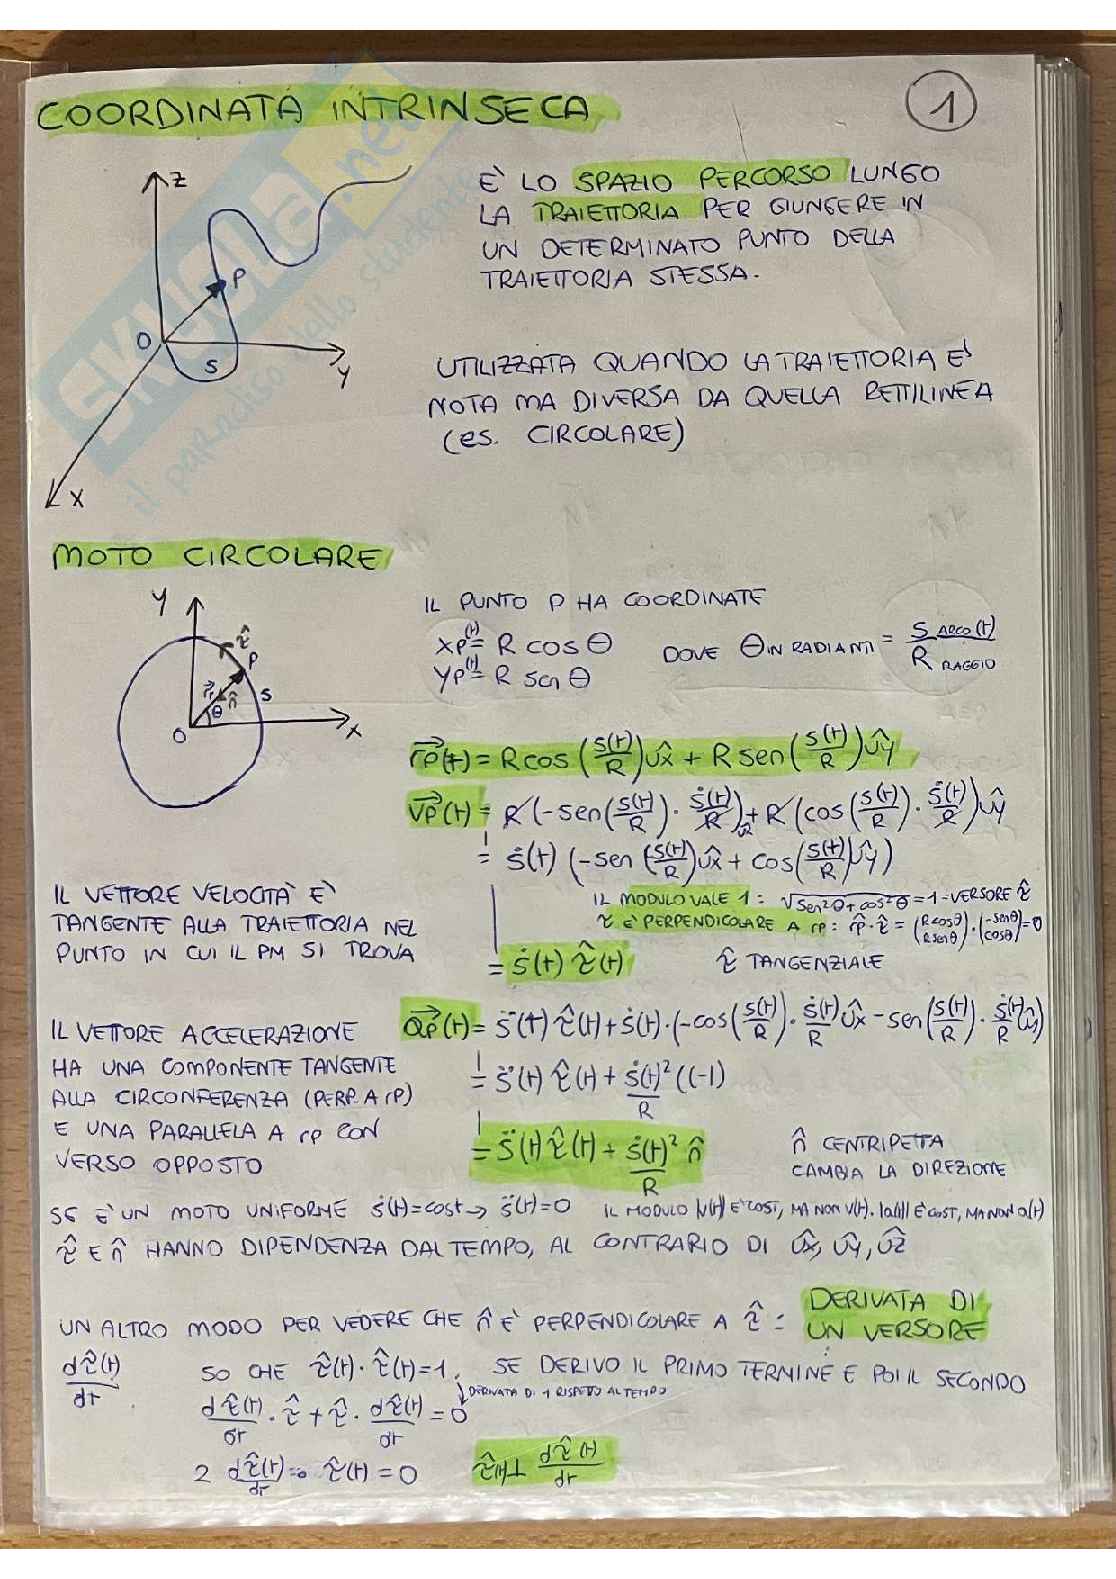 COORDINATA INTRINSECA
1
Z
P
O
S
Y
X
È LO SPAZIO PERCORSO LUNGO
LA TRAIETTORIA PER GIUNGERE IN
UN DETERMINATO PUNTO DELLA
TRAIETTORIA STESSA.
UTILIZZATA QUANDO LA TRAIETTORIA È
NOTA MA DIVERSA DA QUELLA RETTILINEA
(es. CIRCOLARE)
SKUOLA.net
il paradiso dello studente
MOTO CIRCOLARE
Y
τ̂
P
r⃗
n̂
S
θ
O
X
IL PUNTO P HA COORDINATE
XP(t) = R COS θ
YP(t) = R sen θ
DOVE θ IN RADIANTI = S ARCO(t) / R RAGGIO
r⃗P(t) = R cos (S(t)/R) ûx + R sen (S(t)/R) ûy
v⃗P(t) = R (-sen(S(t)/R) · ṡ(t)/R) ûx + R (cos(S(t)/R) · ṡ(t)/R) ûy
= ṡ(t) (-sen (S(t)/R) ûx + cos(S(t)/R) ûy)
IL VETTORE VELOCITÀ È
TANGENTE ALLA TRAIETTORIA NEL
PUNTO IN CUI IL PM SI TROVA
IL MODULO VALE 1: √sen²θ+cos²θ = 1 - VERSORE τ̂
τ̂ È PERPENDICOLARE A rP: r⃗P · τ̂ = (R cosθ / R senθ) · (-senθ / cosθ) = 0
= ṡ(t) τ̂(t)
τ̂ TANGENZIALE
a⃗P(t) = s̈(t) τ̂(t) + ṡ(t) · (-cos(S(t)/R) · ṡ(t)/R ûx - sen(S(t)/R) · ṡ(t)/R ûy)
= s̈(t) τ̂(t) + ṡ(t)²/R ((-1)
= s̈(t) τ̂(t) + ṡ(t)²/R n̂
IL VETTORE ACCELERAZIONE
HA UNA COMPONENTE TANGENTE
ALLA CIRCONFERENZA (PERP. A rP)
E UNA PARALLELA A rP CON
VERSO OPPOSTO
n̂ CENTRIPETA
CAMBIA LA DIREZIONE
SE È UN MOTO UNIFORME ṡ(t)=cost → s̈(t)=0 IL MODULO |v(t)| È COST, MA NON v(t). |a(t)| È COST, MA NON a(t)
τ̂ E n̂ HANNO DIPENDENZA DAL TEMPO, AL CONTRARIO DI ûx, ûy, ûz
UN ALTRO MODO PER VEDERE CHE n̂ È PERPENDICOLARE A τ̂ : DERIVATA DI
UN VERSORE
dτ̂(t)/dt
SO CHE τ̂(t) · τ̂(t) = 1. SE DERIVO IL PRIMO TERMINE E POI IL SECONDO
DERIVATA DI 1 RISPETTO AL TEMPO
dτ̂(t)/dt · τ̂ + τ̂ · dτ̂(t)/dt = 0
2 dτ̂(t)/dt · τ̂(t) = 0
τ̂(t) ⊥ dτ̂(t)/dt